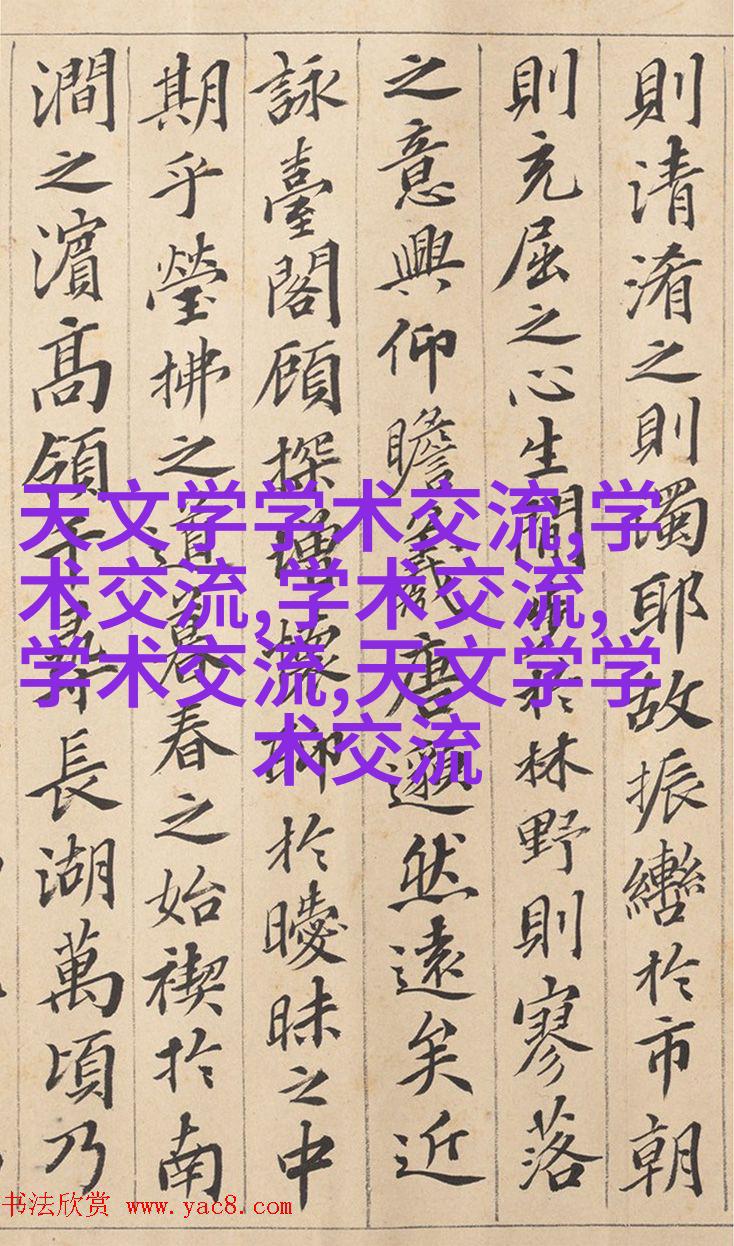 則清淆之則濁耶故振轡於市朝
則充屈之心生間步於林野則寥落
之意興仰瞻羲唐邈然遠矣近
詠臺閣顧探增懷聊於曖昧之中
期乎瑩拂之道暮春之始禊於南
澗之濱高領千尋長湖萬頃乃
天文学学术交流,学
术交流,学术交流,
学术交流,天文学学
术交流
书法欣赏 www.yac8.com